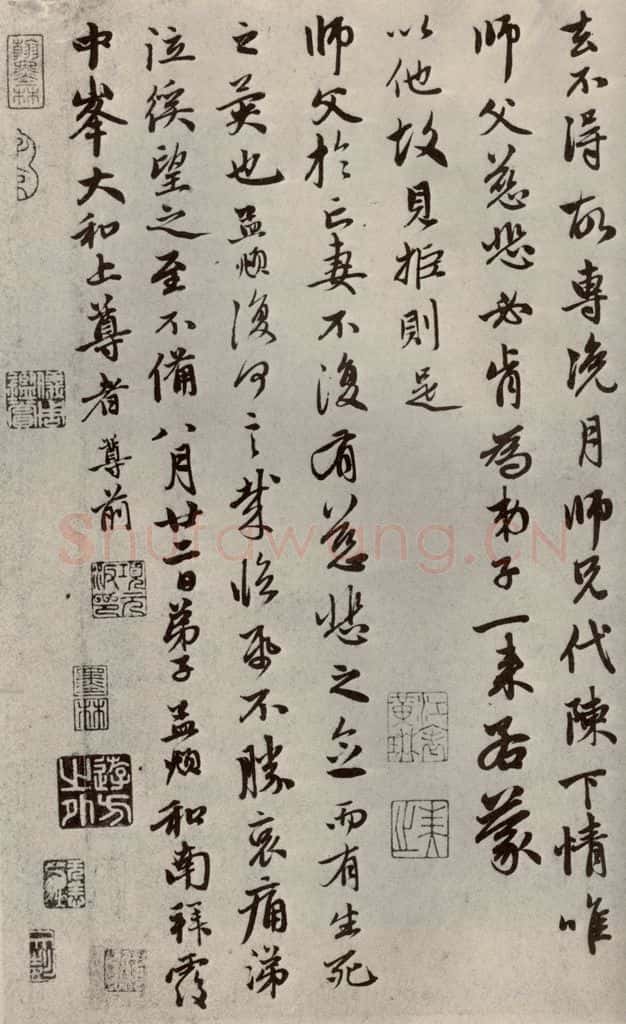 去不得故專浼月師兄代陳下情唯
師父慈悲必肯為弟子一来若蒙
以他故見推則是
師父於亡妻不復有慈悲之念而有生死
之異也孟頫復何言哉臨紙不勝哀痛涕
泣徯望之至不備八月廿二日弟子孟頫和南拜覆
中峯大和上尊者尊前
項元汴印
墨林
遊方之外
儀周鑒賞
Shufawang.CN